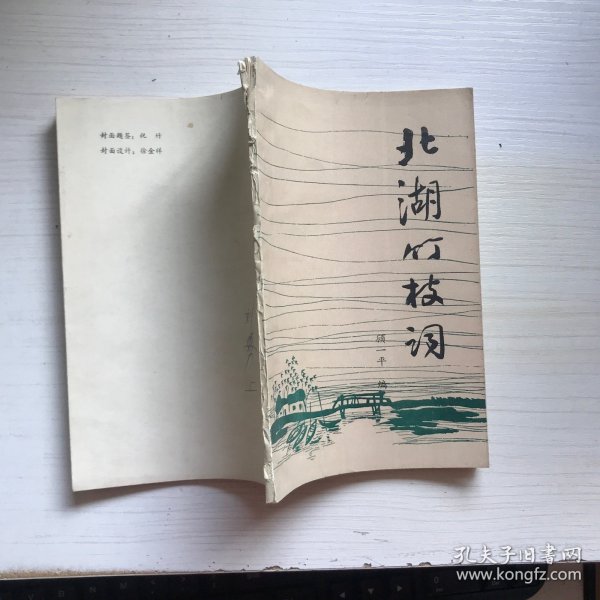 北湖竹枝词
顾一平 编
封面题签：祝 竹
封面设计：徐金祥
孔夫子旧书网
www.kongfz.com